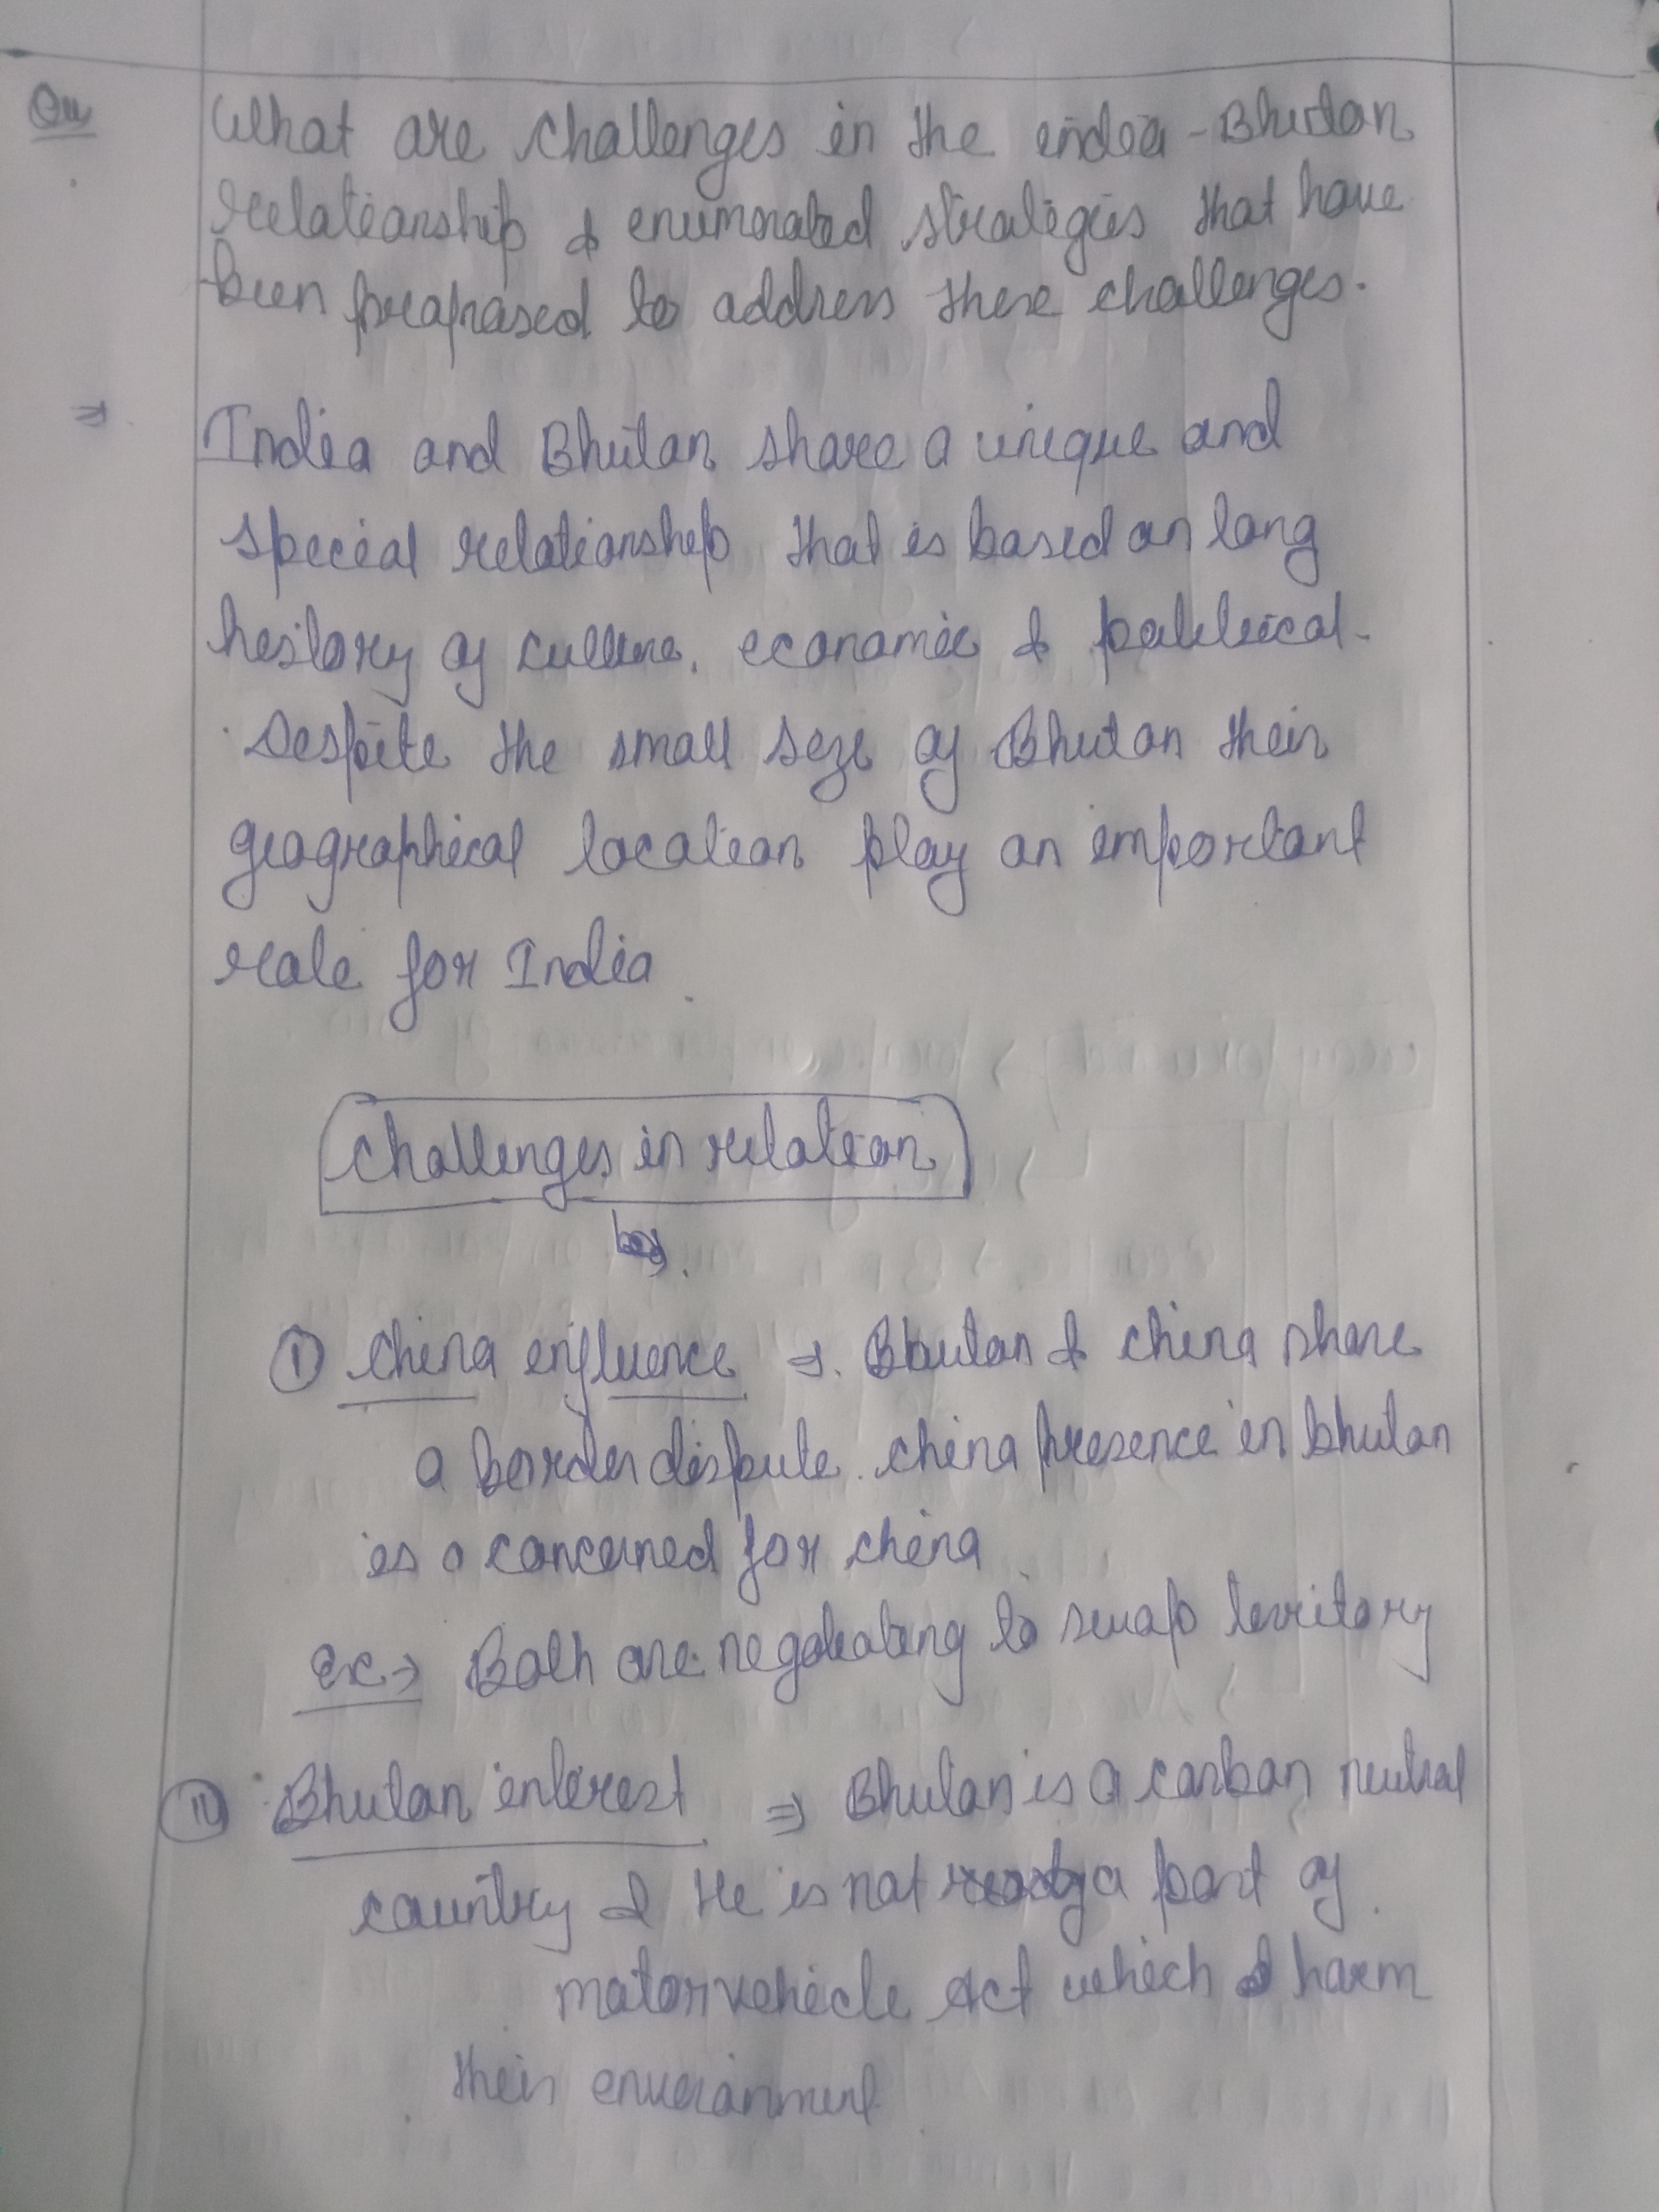 Qu
What are challenges in the india - Bhutan
relationship & enumerated strategies that have
been proposed to address these challenges.
⇒ India and Bhutan share a unique and
special relationship that is based on long
history of culture, economic & political.
Despite the small size of Bhutan their
geographical location play an important
role for India.
Challenges in relation
① China influence ⇒ Bhutan & china share
a border dispute. china presence in bhutan
is a concerned for china
ex → Both are negotiating to swap territory
⑪ Bhutan interest ⇒ Bhutan is a carbon neutral
country & He is not a part of
motor vehicle Act which harm
their environment